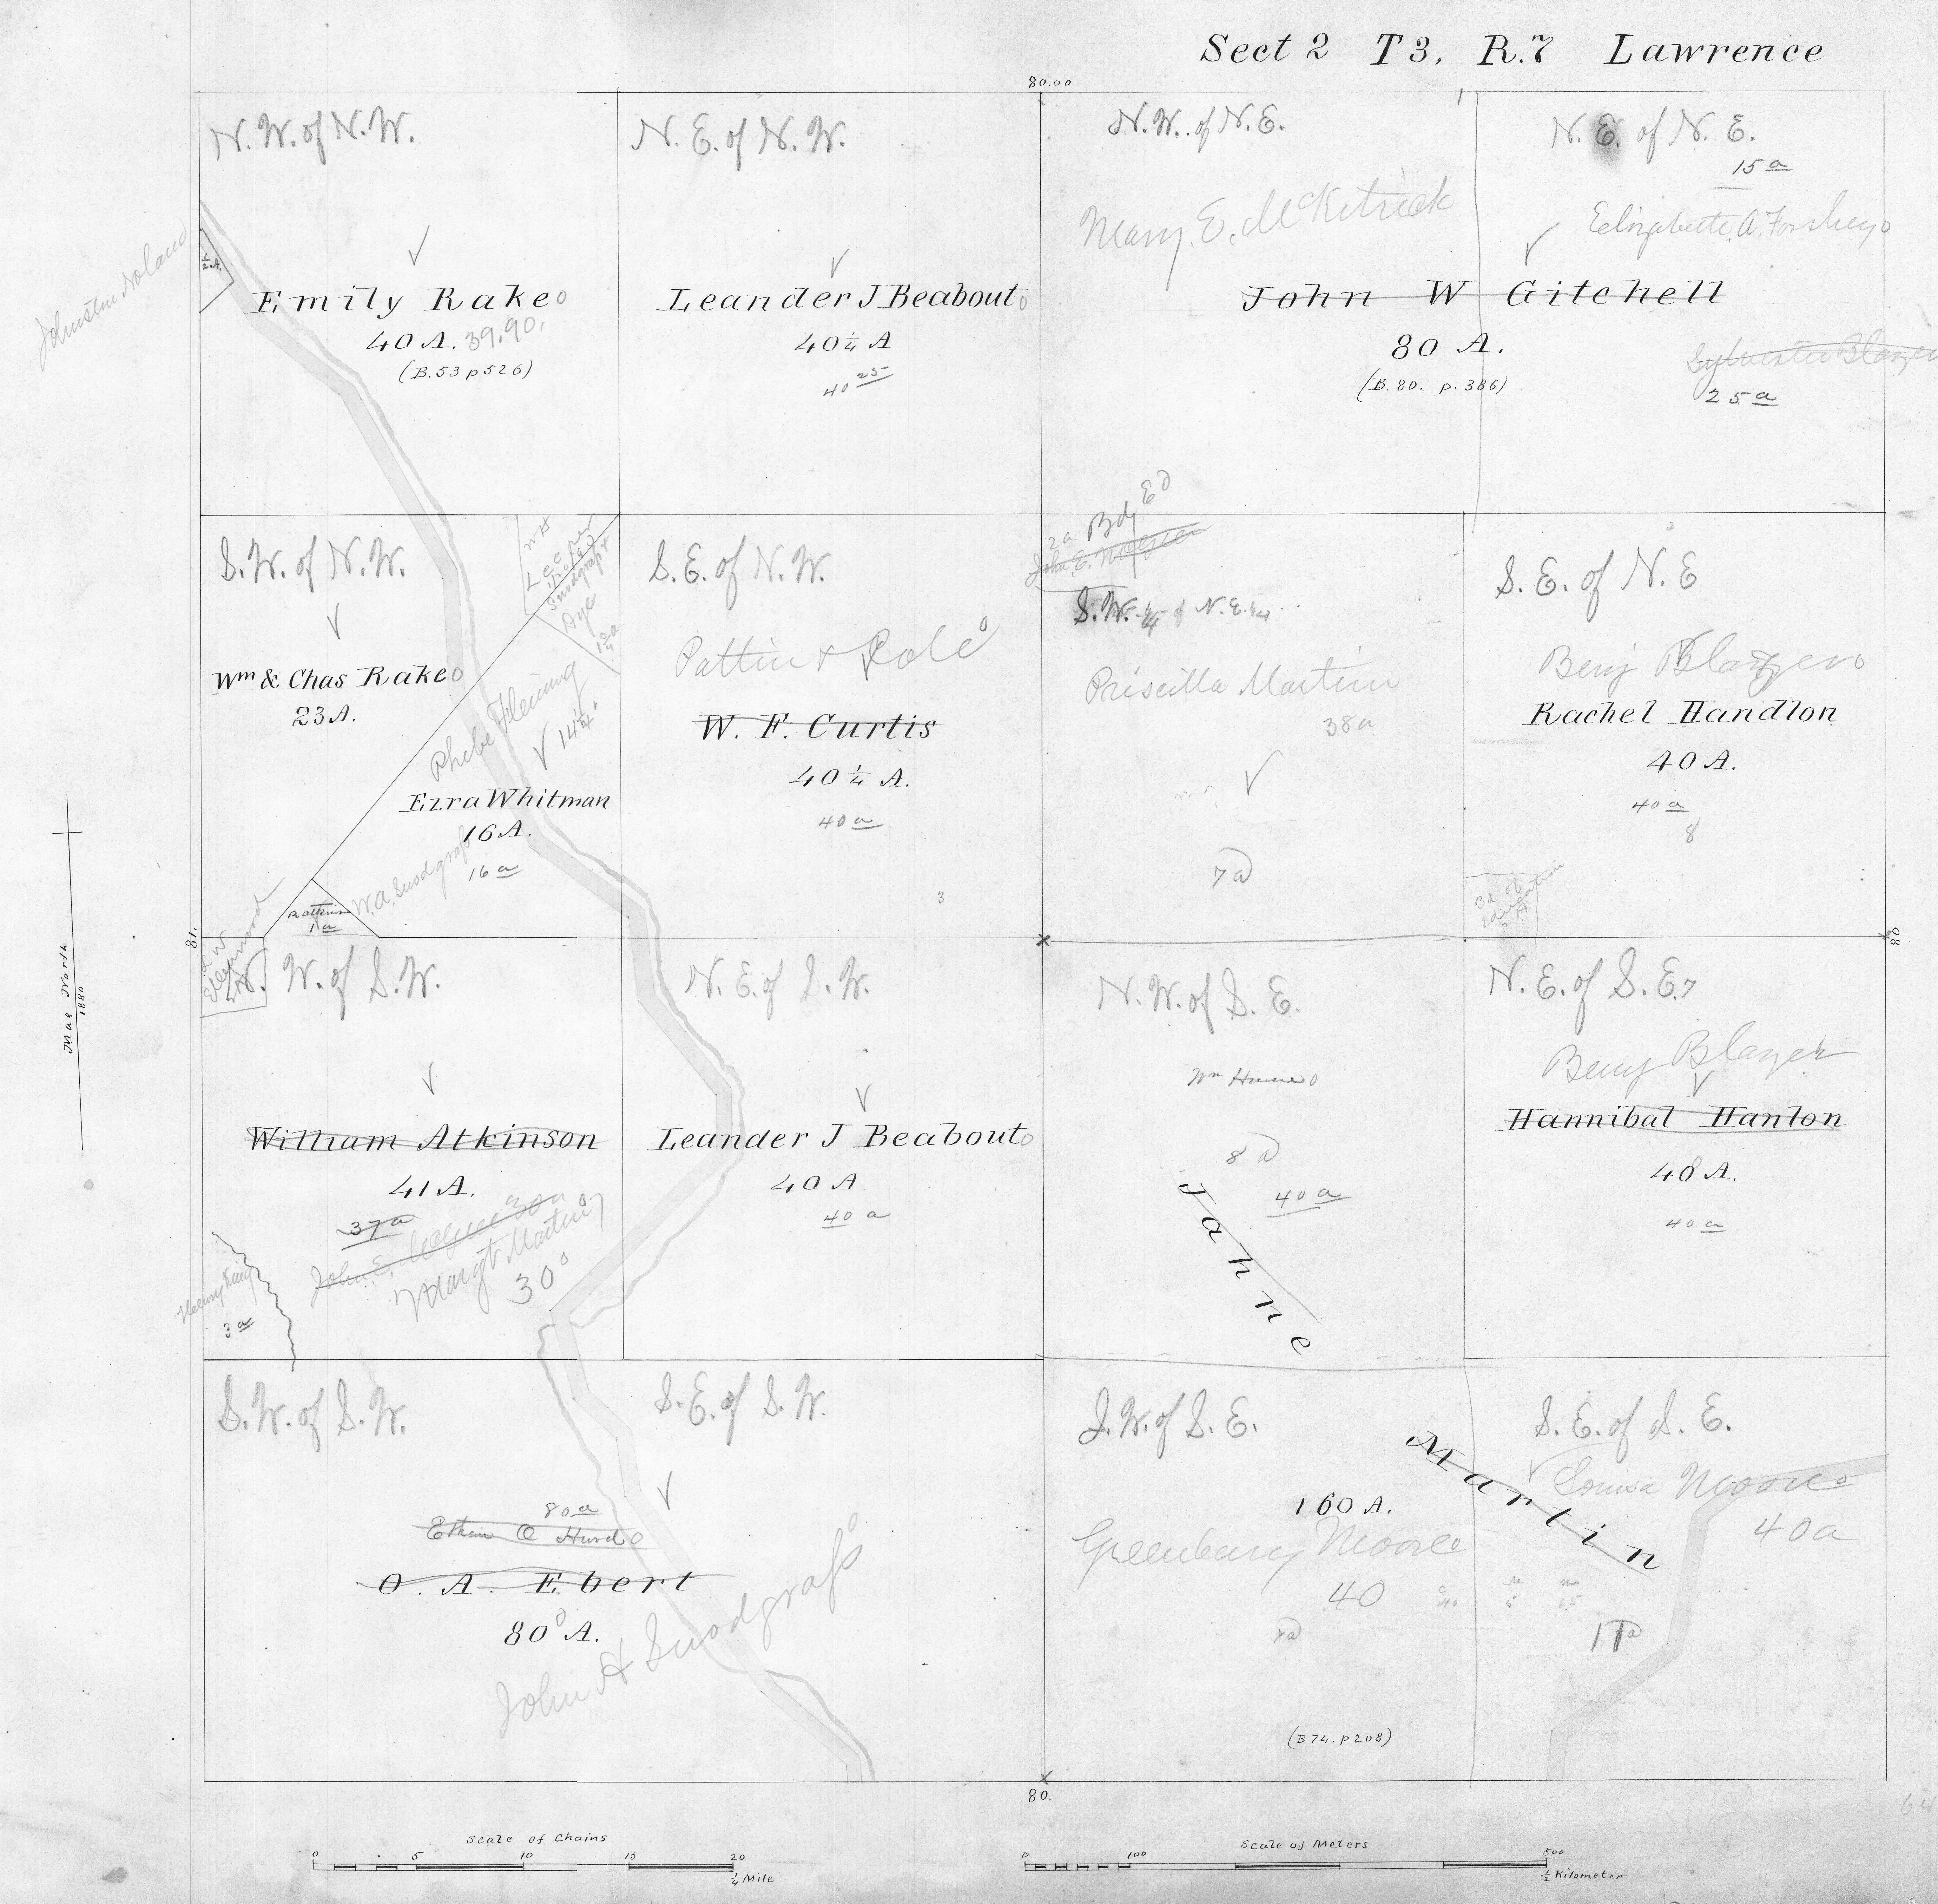 Sect 2 T3, R.7 Lawrence
80.00
N.W. of N.W.
½A.
Emily Rake
40 A. 39,90,
(B.53 p 526)
N.E. of N.W.
Leander J Beabout
40¼ A
40 25
N.W. of N.E.
Mary. E. McKitrick
N.E. of N.E.
15 a
Elizabeth A.
John W Gitchell
80 A.
(B.80. p.386)
Sylvester Blazer
25 a
Johnston Noland
S.W. of N.W.
Wm & Chas Rake
23 A.
WH
Leeper
Snodgrass &
Dye
Phebe Fleming
14¼
Ezra Whitman
16 A.
16 a
W.A. Snodgrass
1 a
S.E. of N.W.
Pattin & Cole
W. F. Curtis
40¼ A.
40 a
2a Bd Ed
S.W. ¼ of N.E. ¼
Priscilla Martin
38a
7a
S.E. of N.E
Benj Blazer
Rachel Handlon
40 A.
40 a
8
Bd of
Education
2 A
81.
80
Mag North
1880
N.W. of S.W.
William Atkinson
41 A.
37 a
Margt Martin
30
Henry King
3 a
N.E. of S.W.
Leander J Beabout
40 A
40 a
N.W. of S.E.
8 a
40 a
Jahne
N.E. of S.E. 7
Benj Blazer
Hannibal Hanlon
40 A.
40 a
S.W. of S.W.
S.E. of S.W.
80 a
O. A. Ebert
80 A.
John H Snodgrass
S.W. of S.E.
160 A.
Greenbury Moore
40
7a
(B74. p208)
S.E. of S.E.
Martin
Louisa Moore
40a
80.
64
Scale of Chains
0 5 10 15 20
¼ Mile
Scale of Meters
0 100 500
½ Kilometer